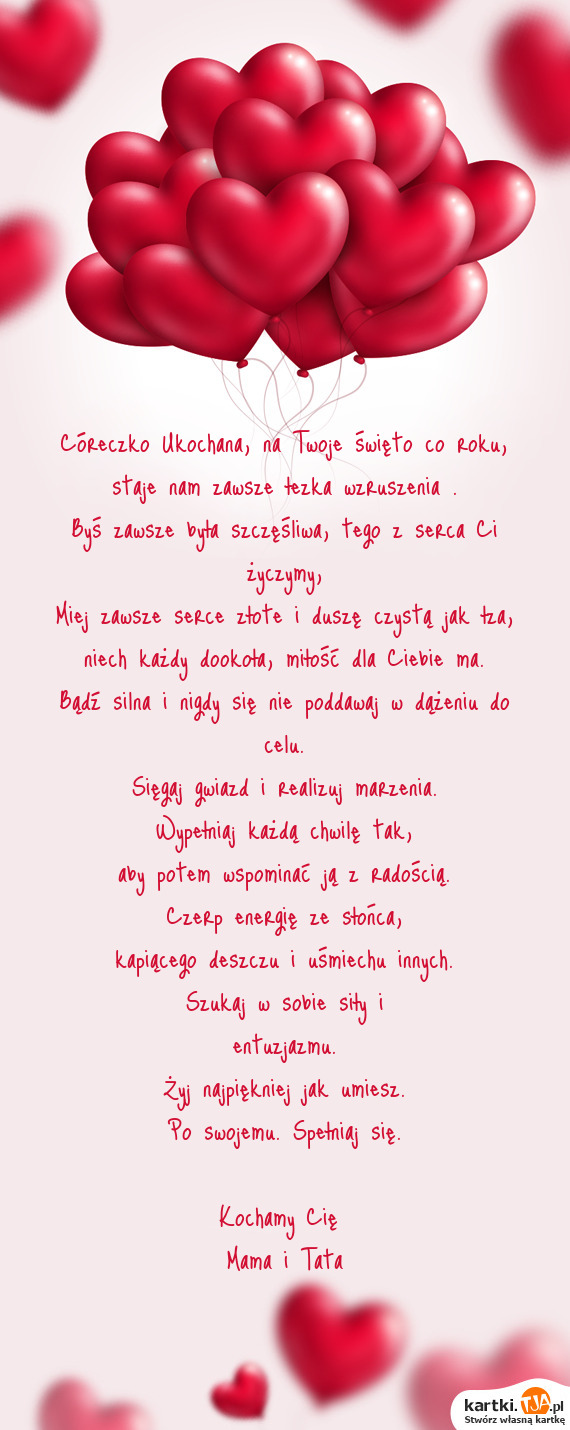 Córeczko Ukochana, na Twoje święto co roku,
staje nam zawsze łezka wzruszenia .
Byś zawsze była szczęśliwa, tego z serca Ci
życzymy,
Miej zawsze serce złote i duszę czystą jak łza,
niech każdy dookoła, miłość dla Ciebie ma.
Bądź silna i nigdy się nie poddawaj w dążeniu do
celu.
Sięgaj gwiazd i realizuj marzenia.
Wypełniaj każdą chwilę tak,
aby potem wspominać ją z radością.
Czerp energię ze słońca,
kapiącego deszczu i uśmiechu innych.
Szukaj w sobie siły i
entuzjazmu.
Żyj najpiękniej jak umiesz.
Po swojemu. Spełniaj się.
Kochamy Cię
Mama i Tata
kartki.TJA.pl
Stwórz własną kartkę